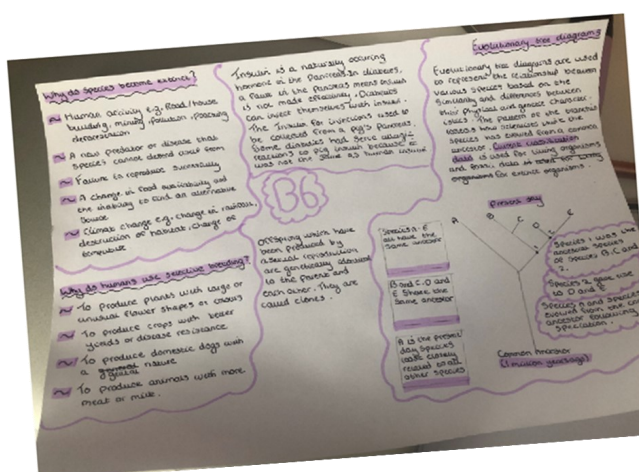 Why do species become extinct?
~ Human activity e.g. Road/house
building, mining, pollution, poaching
deforestation
~ A new predator or disease that
species cannot defend itself from
~ Failure to reproduce successfully
~ A change in food availability and
the inability to find an alternative
source
~ Climate change e.g. change in
destruction of habitat, change of
temperature
Why do humans use selective breeding?
~ To produce plants with large or
unusual flower shapes or colours
~ To produce crops with better
yields or disease resistance
~ To produce domestic dogs with
a nature
~ To produce animals with more
meat or milk.
Insulin is a naturally occuring
hormone in the Pancreas. In diabetes,
a fault in the pancreas means insulin
is not made effectively. Diabetics
can inject themselves with insulin.
The Insulin for injections used to
be collected from a pig's Pancreas.
Some diabetics had allergic
reactions to pig insulin because it
was not the same as human insulin
B6
Offspring which have
been produced by
asexual reproduction
are genetically identical
to the parent and
each other. They are
called clones.
Evolutionary tree diagrams
Evolutionary tree diagrams are used
to represent the relationship between
various species based on the
similarity and differences between
their physical and genetic character-
istics. The pattern of the branches
how scientists think the
species has evolved from a common
ancestor. Current classification
data is used for living organisms
and fossil data is
organisms for extinct organisms.
Present day
A B C D E
Species A-E
all have the
same ancestor
B and C, D and
E share the
same ancestor
A is the present
day species
closely
related to all
other species
Species 1 was the
ancestral species
of species B, C and
2.
Species 2 gave rise
to D and
Species A and species
evolved from the
ancestor following
speciation.
Common Ancestor